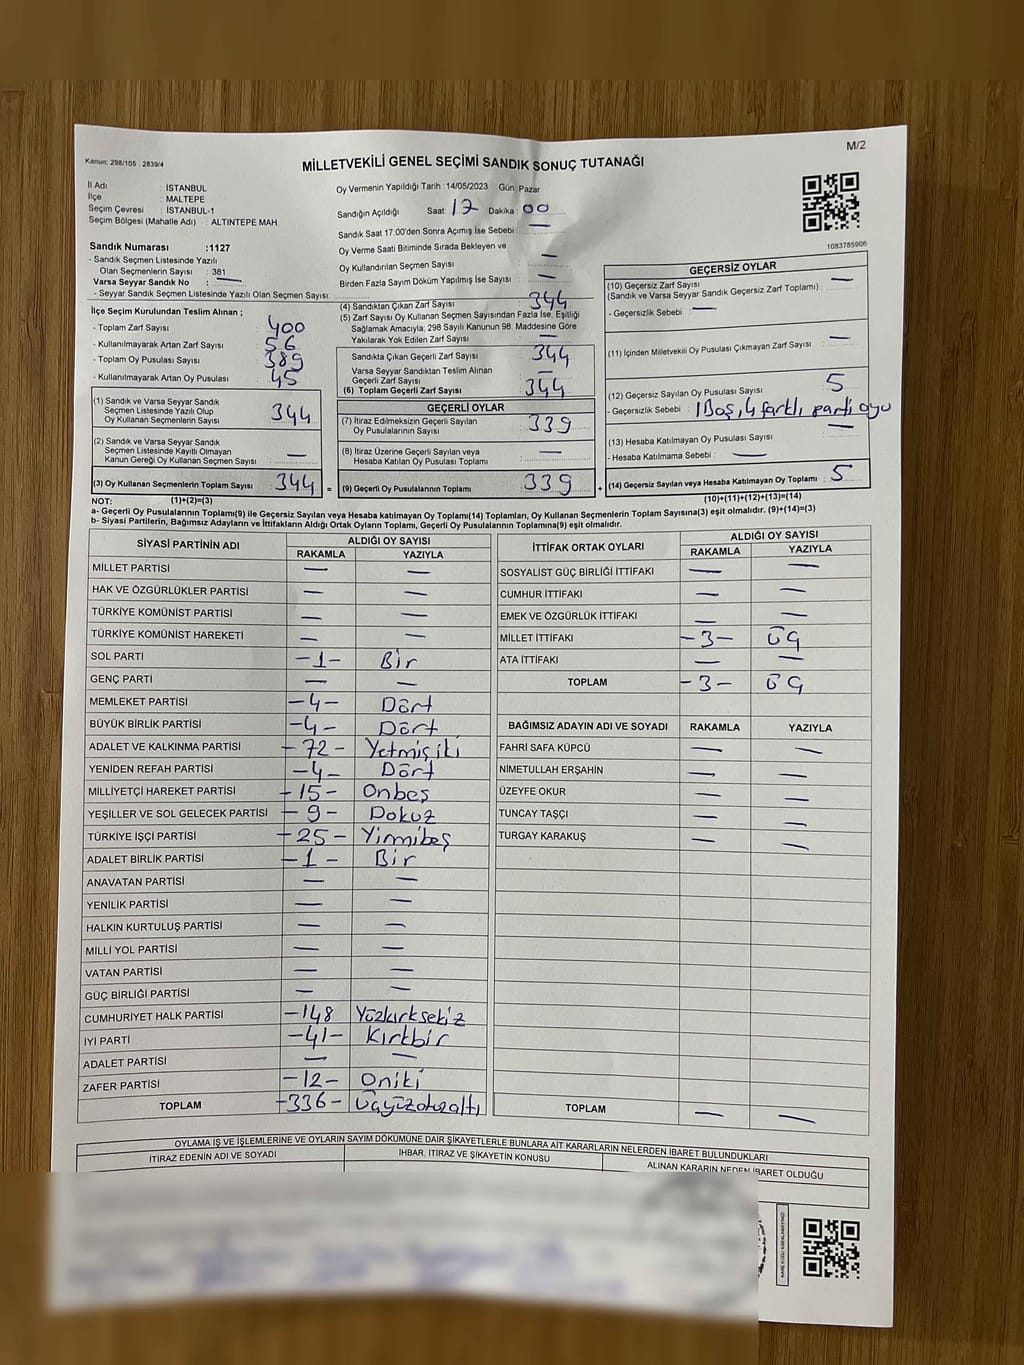 M/2
Kanun: 298/105 : 2839/4
MİLLETVEKİLİ GENEL SEÇİMİ SANDIK SONUÇ TUTANAĞI
İl Adı : İSTANBUL
İlçe : MALTEPE
Seçim Çevresi : İSTANBUL-1
Seçim Bölgesi (Mahalle Adı) : ALTINTEPE MAH.
Sandık Numarası :1127
- Sandık Seçmen Listesinde Yazılı
Olan Seçmenlerin Sayısı : 381
Varsa Seyyar Sandık No : —
- Seyyar Sandık Seçmen Listesinde Yazılı Olan Seçmen Sayısı:
Oy Vermenin Yapıldığı Tarih : 14/05/2023 Gün : Pazar
Sandığın Açıldığı Saat: 17 Dakika : 00
Sandık Saat 17:00'den Sonra Açımış İse Sebebi : —
Oy Verme Saati Bitiminde Sırada Bekleyen ve
Oy Kullandırılan Seçmen Sayısı : —
Birden Fazla Sayım Döküm Yapılmış İse Sayısı : —
1083785906
İlçe Seçim Kurulundan Teslim Alınan ;
- Toplam Zarf Sayısı : 400
- Kullanılmayarak Artan Zarf Sayısı : 56
- Toplam Oy Pusulası Sayısı : 389
- Kullanılmayarak Artan Oy Pusulası : 45
(1) Sandık ve Varsa Seyyar Sandık
Seçmen Listesinde Yazılı Olup
Oy Kullanan Seçmenlerin Sayısı : 344
(2) Sandık ve Varsa Seyyar Sandık
Seçmen Listesinde Kayıtlı Olmayan
Kanun Gereği Oy Kullanan Seçmen Sayısı : —
(3) Oy Kullanan Seçmenlerin Toplam Sayısı : 344 =
(4) Sandıktan Çıkan Zarf Sayısı : 344
(5) Zarf Sayısı Oy Kullanan Seçmen Sayısından Fazla İse, Eşitliği
Sağlamak Amacıyla, 298 Sayılı Kanunun 98. Maddesine Göre
Yakılarak Yok Edilen Zarf Sayısı : —
Sandıkta Çıkan Geçerli Zarf Sayısı : 344
Varsa Seyyar Sandıktan Teslim Alınan
Geçerli Zarf Sayısı : —
(6) Toplam Geçerli Zarf Sayısı : 344
GEÇERLİ OYLAR
(7) İtiraz Edilmeksizin Geçerli Sayılan
Oy Pusulalarının Sayısı : 339
(8) İtiraz Üzerine Geçerli Sayılan veya
Hesaba Katılan Oy Pusulası Toplamı : —
(9) Geçerli Oy Pusulalarının Toplamı : 339 +
GEÇERSİZ OYLAR
(10) Geçersiz Zarf Sayısı
(Sandık ve Varsa Seyyar Sandık Geçersiz Zarf Toplamı) : —
- Geçersizlik Sebebi : —
(11) İçinden Milletvekili Oy Pusulası Çıkmayan Zarf Sayısı : —
(12) Geçersiz Sayılan Oy Pusulası Sayısı : 5
- Geçersizlik Sebebi : 1 Boş, 4 farklı parti oyu
(13) Hesaba Katılmayan Oy Pusulası Sayısı : —
- Hesaba Katılmama Sebebi : —
(14) Geçersiz Sayılan veya Hesaba Katılmayan Oy Toplamı : 5
NOT: (1)+(2)=(3) (10)+(11)+(12)+(13)=(14)
a- Geçerli Oy Pusulalarının Toplamı(9) ile Geçersiz Sayılan veya Hesaba katılmayan Oy Toplamı(14) Toplamları, Oy Kullanan Seçmenlerin Toplam Sayısına(3) eşit olmalıdır. (9)+(14)=(3)
b- Siyasi Partilerin, Bağımsız Adayların ve İttifakların Aldığı Ortak Oyların Toplamı, Geçerli Oy Pusulalarının Toplamına(9) eşit olmalıdır.
SİYASİ PARTİNİN ADI ALDIĞI OY SAYISI
RAKAMLA YAZIYLA
MİLLET PARTİSİ — —
HAK VE ÖZGÜRLÜKLER PARTİSİ — —
TÜRKİYE KOMÜNİST PARTİSİ — —
TÜRKİYE KOMÜNİST HAREKETİ — —
SOL PARTİ -1- Bir
GENÇ PARTİ — —
MEMLEKET PARTİSİ -4- Dört
BÜYÜK BİRLİK PARTİSİ -4- Dört
ADALET VE KALKINMA PARTİSİ -72- Yetmişiki
YENİDEN REFAH PARTİSİ -4- Dört
MİLLİYETÇİ HAREKET PARTİSİ -15- Onbeş
YEŞİLLER VE SOL GELECEK PARTİSİ -9- Dokuz
TÜRKİYE İŞÇİ PARTİSİ -25- Yirmibeş
ADALET BİRLİK PARTİSİ -1- Bir
ANAVATAN PARTİSİ — —
YENİLİK PARTİSİ — —
HALKIN KURTULUŞ PARTİSİ — —
MİLLİ YOL PARTİSİ — —
VATAN PARTİSİ — —
GÜÇ BİRLİĞİ PARTİSİ — —
CUMHURİYET HALK PARTİSİ -148 Yüzkırksekiz
İYİ PARTİ -41- Kırkbir
ADALET PARTİSİ — —
ZAFER PARTİSİ -12- Oniki
TOPLAM -336- Üçyüzotuzaltı
İTTİFAK ORTAK OYLARI ALDIĞI OY SAYISI
RAKAMLA YAZIYLA
SOSYALİST GÜÇ BİRLİĞİ İTTİFAKI — —
CUMHUR İTTİFAKI — —
EMEK VE ÖZGÜRLÜK İTTİFAKI — —
MİLLET İTTİFAKI -3- ÜÇ
ATA İTTİFAKI — —
TOPLAM -3- ÜÇ
BAĞIMSIZ ADAYIN ADI VE SOYADI RAKAMLA YAZIYLA
FAHRİ SAFA KÜPCÜ — —
NİMETULLAH ERŞAHİN — —
ÜZEYFE OKUR — —
TUNCAY TAŞÇI — —
TURGAY KARAKUŞ — —
TOPLAM — —
OYLAMA İŞ VE İŞLEMLERİNE VE OYLARIN SAYIM DÖKÜMÜNE DAİR ŞİKAYETLERLE BUNLARA AİT KARARLARIN NELERDEN İBARET BULUNDUKLARI
İTİRAZ EDENİN ADI VE SOYADI İHBAR, İTİRAZ VE ŞİKAYETİN KONUSU ALINAN KARARIN NEDEN İBARET OLDUĞU